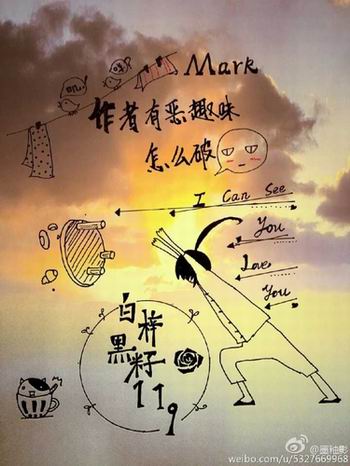 Mark
作者有恶趣味
怎么破
I Can See
You
Love
You
白梓
黑籽
119
weibo.com/u/5327669968